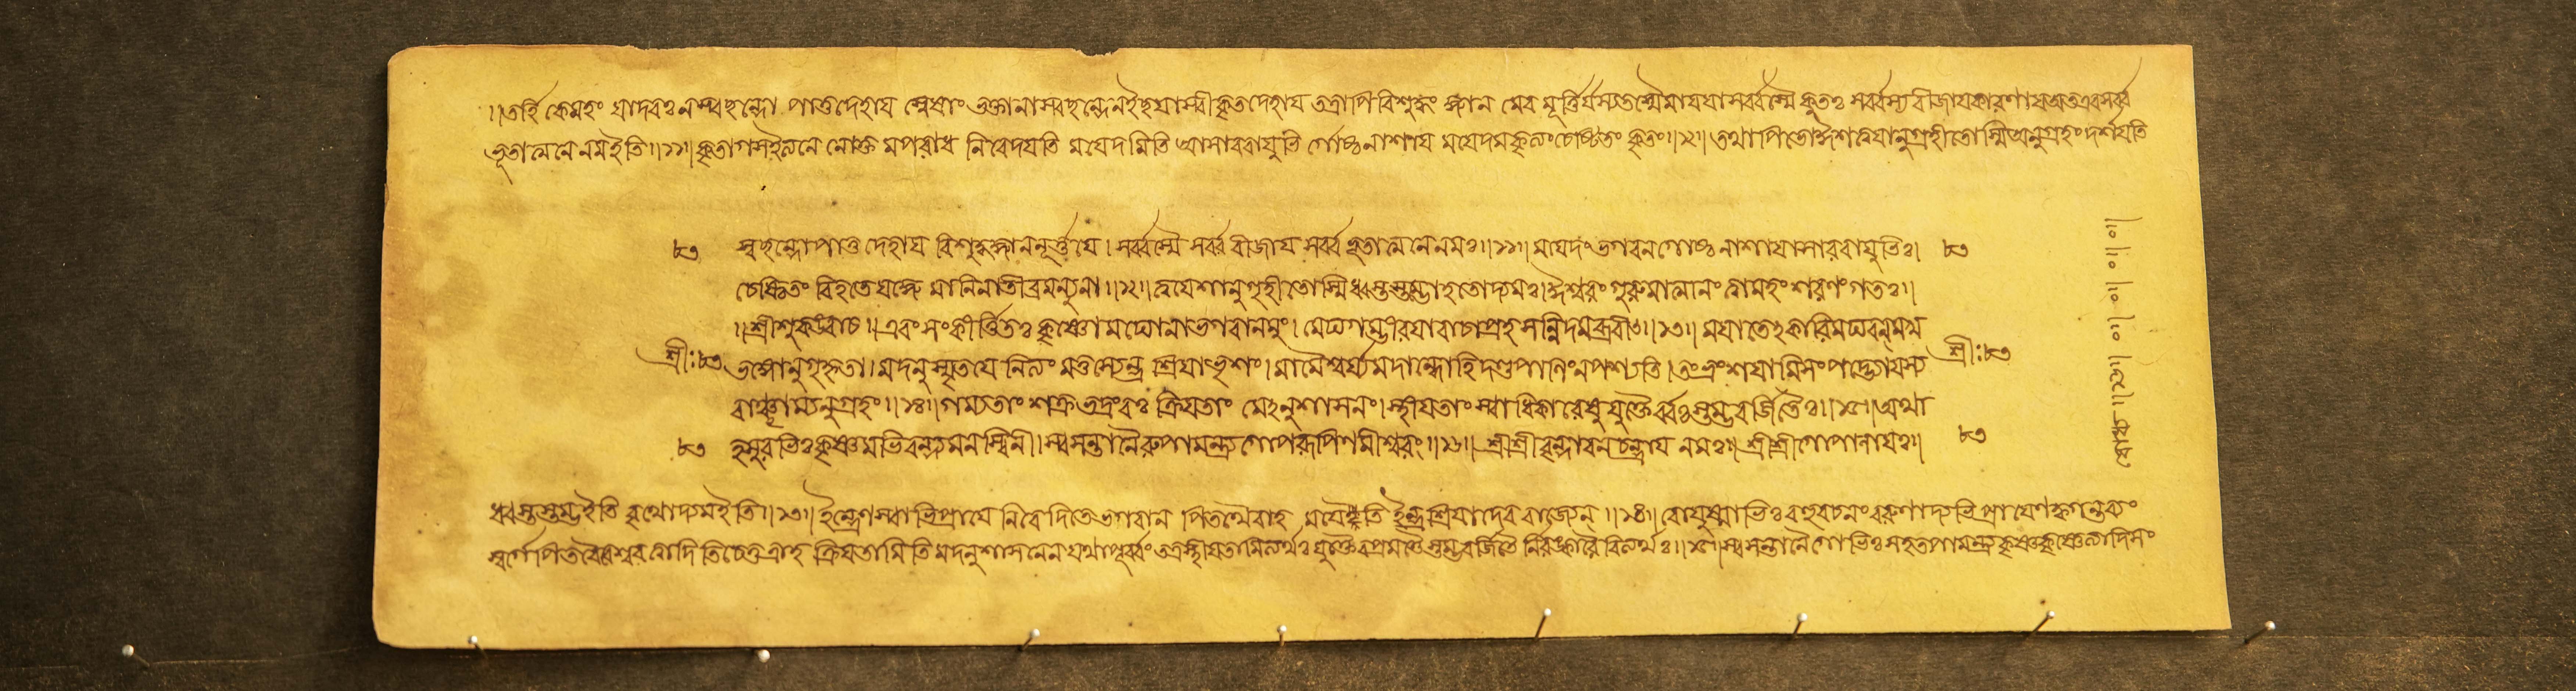 ।।তর্হি কেমহং যাদবঃ নস্বছন্দো পাত্তদেহায় স্বেষাং ভক্তানাম্স্বছন্দেনইছয়াস্বীকৃতদেহায় তত্রাপি বিশুদ্ধং জ্ঞান মেব মূর্ত্তির্যস্যতস্মৈমায়যাসর্ব্বস্মৈ কুতঃ সর্ব্বস্য বীজায়কারণায়অতএবসর্ব্ব
ভূতাত্মনে নমইতি।।১১।।কৃতাগসইন্দ্রেনে নোক্ত মপরাধ নিবেদয়তি ময়েদ মিতি আসারবায়ুভি র্গোষ্ঠনাশায় ময়েদমকৃত্যংচেষ্টিতং কৃতং।।১২।। তথাপিভোঈশত্বয়ানুগ্রহীতোস্মিঅনুগ্রহংদর্শয়তি
৮৩ স্বছন্দোপাত্ত দেহায় বিশুদ্ধজ্ঞানমূর্ত্তয়ে। সর্ব্বস্মৈ সর্ব্ব বীজায় সর্ব্ব ভূতাত্মনে নমঃ।।১১।।ময়েদংভগবনগোষ্ঠ নাশায়াসারবায়ুভিঃ। ৮৩
চেষ্টিতং বিহতেযজ্ঞে মানিনাতীব্রমন্যুনা।।১২।।ত্বয়েশানুগৃহীতোস্মিধ্বস্তস্তম্ভোহতোদ্যমঃ।ঈশ্বরংগুরুমাত্মানংত্বামহংশরণংগতঃ।।
।।শ্রীশুকউবাচ।।এবংসংকীর্ত্তিতঃ কৃষ্ণোমঘোনাভগবানমুং।মেঘগম্ভীরয়াবাচাপ্রহসন্নিদমব্রবীৎ।।১৩।। ময়াতেহকারিমঘবন্মখ
শ্রীঃ৮৩ ভঙ্গোনুগৃহ্নতা।মদনুস্মৃতয়ে নিত্যং মত্তস্যেন্দ্র শ্রিয়াভৃশং।মামৈশ্বর্য্যমদান্ধোহিদণ্ডপানিংনপশ্যতি।তংভ্রংশয়ামিসংপদ্ভ্যোযস্য শ্রীঃ৮৩
বাঞ্ছাম্যনুগ্রহং।।১৪।।গম্যতাং শক্রভদ্রংবঃ ক্রিয়তাং মেহনুশাসনং।স্থীয়তাং স্বাধিকারেষুযুক্তৈর্ব্বঃস্তম্ভবর্জিতৈঃ।।১৫।।অথা
৮৩ হসুরভিঃকৃষ্ণমভিবন্দ্যমনস্বিনী।স্বসন্তানৈরুপামন্ত্র্যগোপরূপিণমীশ্বরং।।১৬।।শ্রীশ্রীবৃন্দাবনচন্দ্রায় নমঃ।।শ্রীশ্রীগোপালায়ঃ।। ৮৩
ধ্বস্তস্তম্ভইতি বৃথোদ্যমইতি।।১৩।।ইন্দ্রেণস্বাভিপ্রায়ে নিবেদিতেভগবান পিতথৈবাহ ময়েতি ইন্দ্রশ্রিয়াদেবরাজ্যেন।।১৪।।
স্বর্গেপি ক্রিয়তামিতি মদনুশাসনেন যথাপূর্ব্বং স্তম্ভবর্জিতৈ র্নিরহঙ্কারৈ রিত্যর্থঃ।।১৫।।স্বসন্তানৈর্গোভিঃসহ